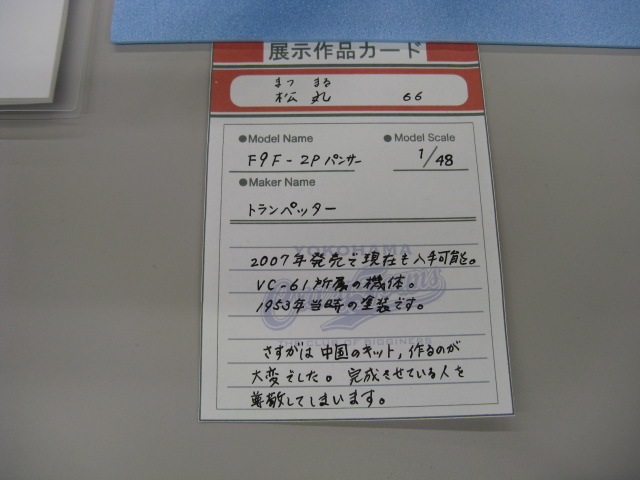 展示作品カード
まつ まる
松 丸 66
●Model Name ●Model Scale
F9F-2P パンサー 1/48
●Maker Name
トランペッター
YOKOHAMA
2007年発売で現在も入手可能。
VC-61所属の機体。
1953年当時の塗装です。
さすがは中国のキット,作るのが
大変でした。完成させている人を
尊敬してしまいます。